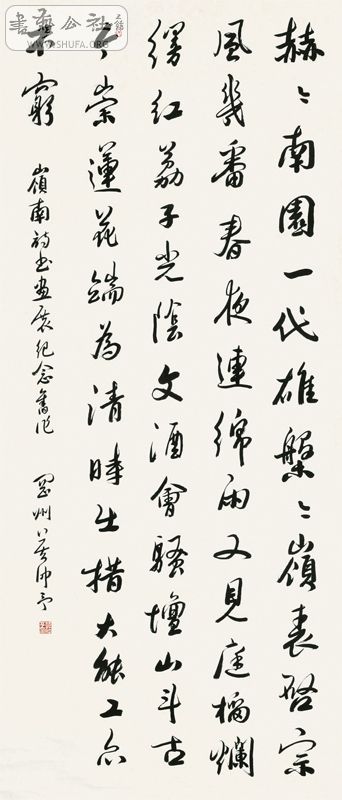 赫〻南園一代雄槃〻嶺表啓宗
風幾番春夜連綿雨又見庭榴爛
縵紅荔子光陰文酒會騷壇山斗古
今崇蓮花端為清時出措大能工亦
不窮
嶺南詩書畫展紀念舊作 岡州莫仲予
WWW.SHUFA.ORG